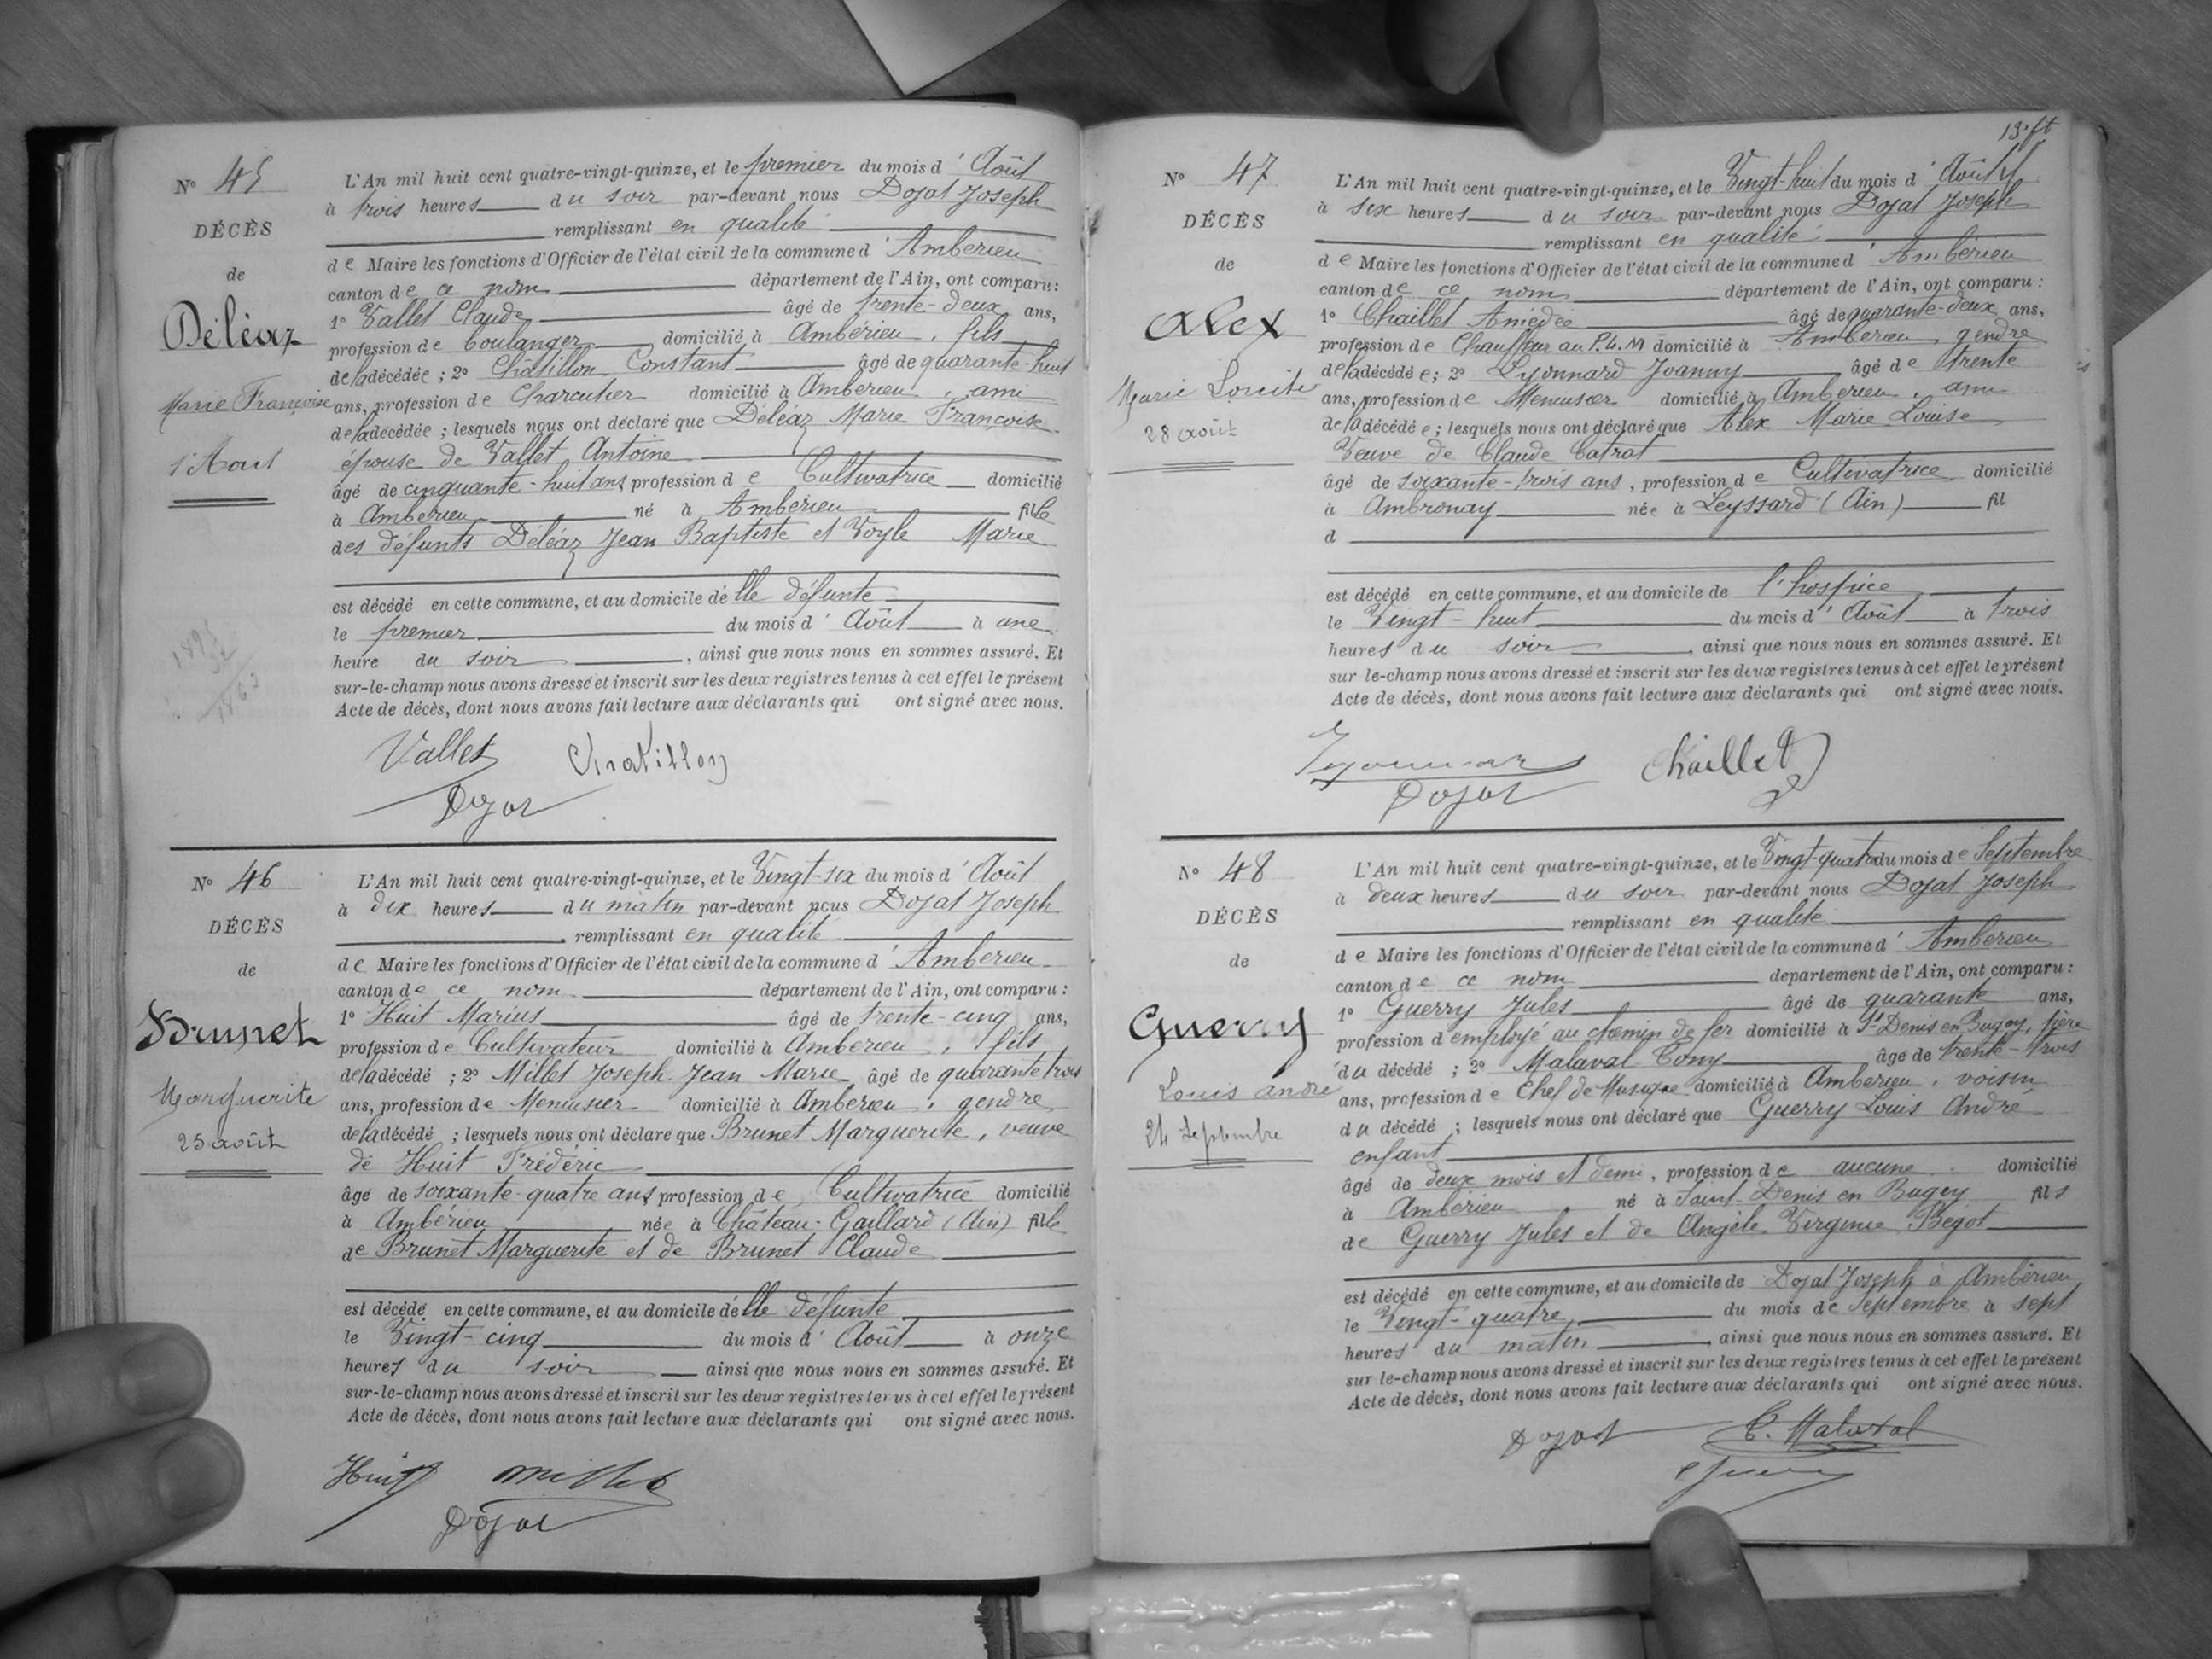 N° 45
DÉCÈS
de
Déléaz
Marie Françoise
1 Aout
L'An mil huit cent quatre-vingt-quinze, et le premier du mois d' Août
à trois heures du soir par-devant nous Dojat Joseph
remplissant en qualité
de Maire les fonctions d'Officier de l'état civil de la commune d' Amberieu
canton de ce nom département de l'Ain, ont comparu :
1° Vallet Claude âgé de trente-deux ans,
profession de boulanger domicilié à Amberieu, fils
de la décédée ; 2° Châtillon Constant âgé de quarante-huit
ans, profession de Charcutier domicilié à Amberieu, ami
de la décédée ; lesquels nous ont déclaré que Déléaz Marie Françoise
épouse de Vallet Antoine
âgé de cinquante-huit ans profession de Cultivatrice domicilié
à Amberieu né à Amberieu fille
des défunts Déléaz Jean Baptiste et Voyle Marie
est décédé en cette commune, et au domicile de lle défunte
le premier du mois d' Août à une
heure du soir, ainsi que nous nous en sommes assuré. Et
sur-le-champ nous avons dressé et inscrit sur les deux registres tenus à cet effet le présent
Acte de décès, dont nous avons fait lecture aux déclarants qui ont signé avec nous.
Vallet Chatillon
Dojat
N° 46
DÉCÈS
de
Brunet
Marguerite
25 août
L'An mil huit cent quatre-vingt-quinze, et le Vingt-six du mois d' Août
à dix heures du matin par-devant nous Dojat Joseph
remplissant en qualité
de Maire les fonctions d'Officier de l'état civil de la commune d' Amberieu
canton de ce nom département de l'Ain, ont comparu :
1° Huit Marius âgé de trente-cinq ans,
profession de Cultivateur domicilié à Amberieu, fils
de la décédé ; 2° Millet Joseph Jean Marie âgé de quarante trois
ans, profession de Menuisier domicilié à Amberieu, gendre
de la décédé ; lesquels nous ont déclaré que Brunet Marguerite, veuve
de Huit Frédéric
âgé de soixante-quatre ans profession de Cultivatrice domicilié
à Ambérieu née à Château-Gaillard (Ain) fille
de Brunet Marguerite et de Brunet Claude
est décédé en cette commune, et au domicile de lle défunte
le Vingt-cinq du mois d' Août à onze
heures du soir ainsi que nous nous en sommes assuré. Et
sur-le-champ nous avons dressé et inscrit sur les deux registres tenus à cet effet le présent
Acte de décès, dont nous avons fait lecture aux déclarants qui ont signé avec nous.
Huit Millet
Dojat
N° 47
DÉCÈS
de
Alex
Marie Louise
28 août
L'An mil huit cent quatre-vingt-quinze, et le Vingt-huit du mois d' Août
à six heures du soir par-devant nous Dojat Joseph
remplissant en qualité
de Maire les fonctions d'Officier de l'état civil de la commune d' Ambérieu
canton de ce nom département de l'Ain, ont comparu :
1° Chaillet Amédée âgé de quarante-deux ans,
profession de Chauffeur au P.L.M domicilié à Amberieu, gendre
de la décédée ; 2° Lyonnard Joanny âgé de trente
ans, profession de Menuisier domicilié à Amberieu, ami
de la décédée ; lesquels nous ont déclaré que Alex Marie Louise
Veuve de Claude Catrat
âgé de soixante-trois ans, profession de Cultivatrice domicilié
à Ambronay née à Leyssard (Ain) fil
d
est décédé en cette commune, et au domicile de l'hospice
le Vingt-huit du mois d' Août à trois
heures du soir, ainsi que nous nous en sommes assuré. Et
sur le-champ nous avons dressé et inscrit sur les deux registres tenus à cet effet le présent
Acte de décès, dont nous avons fait lecture aux déclarants qui ont signé avec nous.
Chaillet
Dojat
N° 48
DÉCÈS
de
Guerry
Louis andré
24 Septembre
L'An mil huit cent quatre-vingt-quinze, et le Vingt-quatre du mois de Septembre
à deux heures du soir par-devant nous Dojat Joseph
remplissant en qualité
de Maire les fonctions d'Officier de l'état civil de la commune d' Amberieu
canton de ce nom departement de l'Ain, ont comparu :
1° Guerry Jules âgé de quarante ans,
profession d'employé au chemin de fer domicilié à St Denis en Bugey, père
du décédé ; 2° Malaval Tony âgé de trente-trois
ans, profession de Chef de Musique domicilié à Amberieu, voisin
du décédé ; lesquels nous ont déclaré que Guerry Louis André
enfant
âgé de deux mois et demi, profession de aucune domicilié
à Ambérieu né à Saint-Denis en Bugey fils
de Guerry Jules et de Angèle Virginie Bégot
est décédé en cette commune, et au domicile de Dojat Joseph à Ambérieu
le Vingt-quatre du mois de Septembre à sept
heures du matin, ainsi que nous nous en sommes assuré. Et
sur le-champ nous avons dressé et inscrit sur les deux registres tenus à cet effet le présent
Acte de décès, dont nous avons fait lecture aux déclarants qui ont signé avec nous.
Dojat Malaval